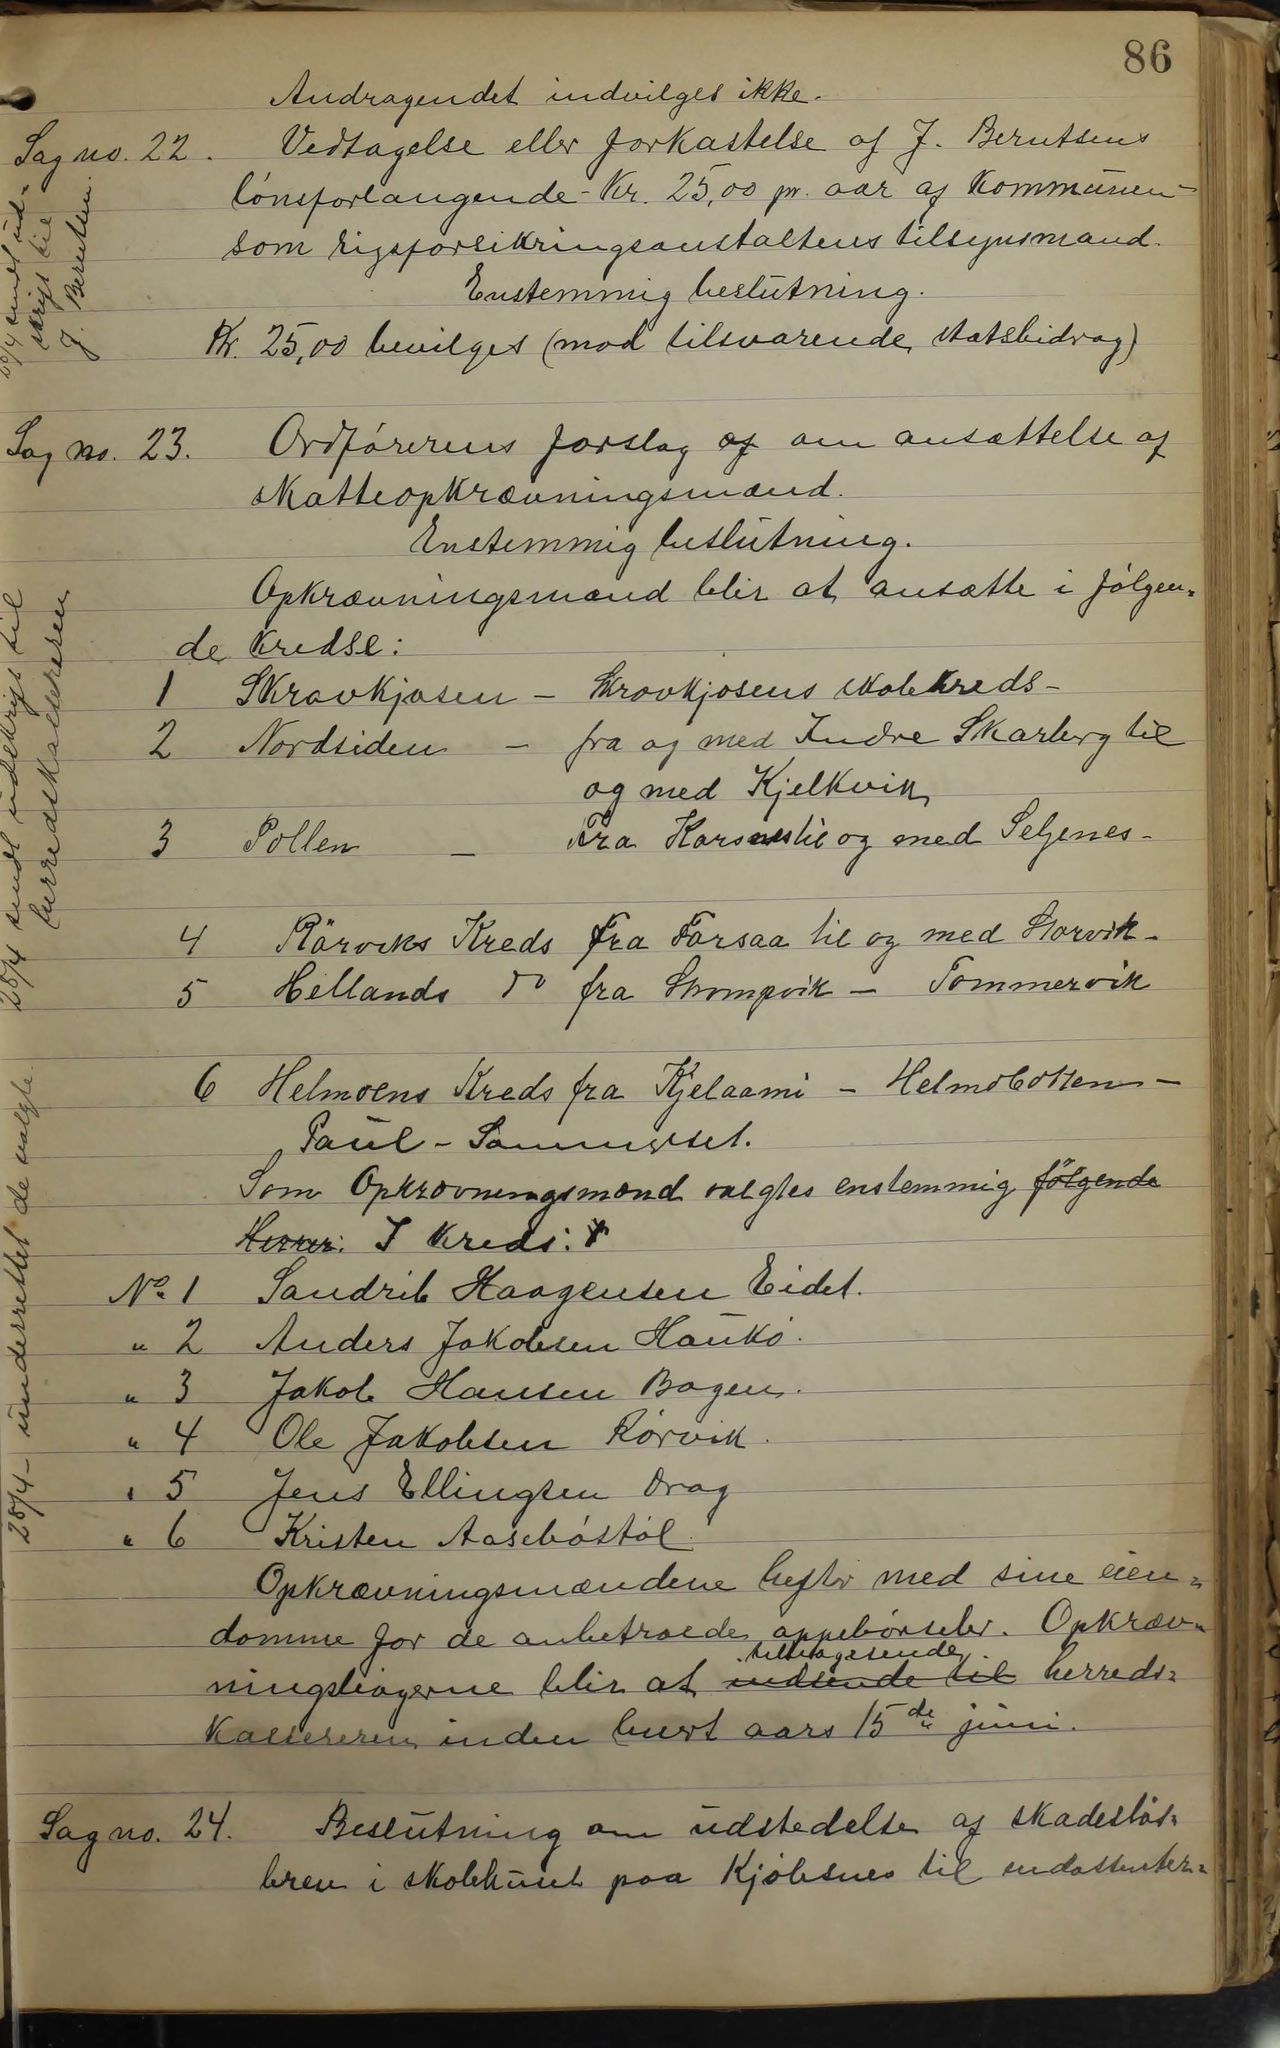 86
Andragendet indvilges ikke.
Sag no. 22. Vedtagelse eller forkastelse af J. Berntsens
lönsforlangende - Kr. 25,00 pr. aar af kommunen -
som rigsforsikringsanstaltens tilsynsmand.
Enstemmig beslutning.
Kr. 25,00 bevilges (mod tilsvarende statsbidrag)
sendt ud-
skrift til
J. Berntsen
Sag no. 23. Ordförerens forslag af om ansættelse af
skatteopkrævningsmænd.
Enstemmig beslutning.
Opkrævningsmænd blir at ansætte i fölgen-
de kredse:
1 Skravkjosen - Skrovkjosens skolekreds -
2 Nordsiden - fra og med Indre Skarberg til
og med Kjelkvik
3 Pollen - Fra Korsnes til og med Seljenes -
4 Rörviks Kreds fra Forsaa til og med Storvik -
5 Hellands do fra Skrompvik - Tommervik
6 Helmoens Kreds fra Kjelaami - Helmobotten -
Paul - Sommerset.
28/4 sendt udskrift til
herredskassereren
Som Opkrævningsmænd valgtes enstemmig fölgende
Herrer: I kreds:
No 1 Sandrik Haagensen Eidet.
" 2 Anders Jakobsen Haukö.
" 3 Jakob Hansen Bogen.
" 4 Ole Jakobsen Rörvik.
" 5 Jens Ellingsen Drag
" 6 Kristen Aaseböstöl.
28/4 - underrettet de valgte.
Opkrævningsmændene hefter med sine eien-
domme for de anbetroede oppebörseler. Opkræv-
tilbagesende
ningsbögerne blir at indsende til herreds-
kassereren inden hvert aars 15de juni.
Sag no. 24. Beslutning om udstedelse af skadeslös-
brev i skolehuset paa Kjöbsnes til